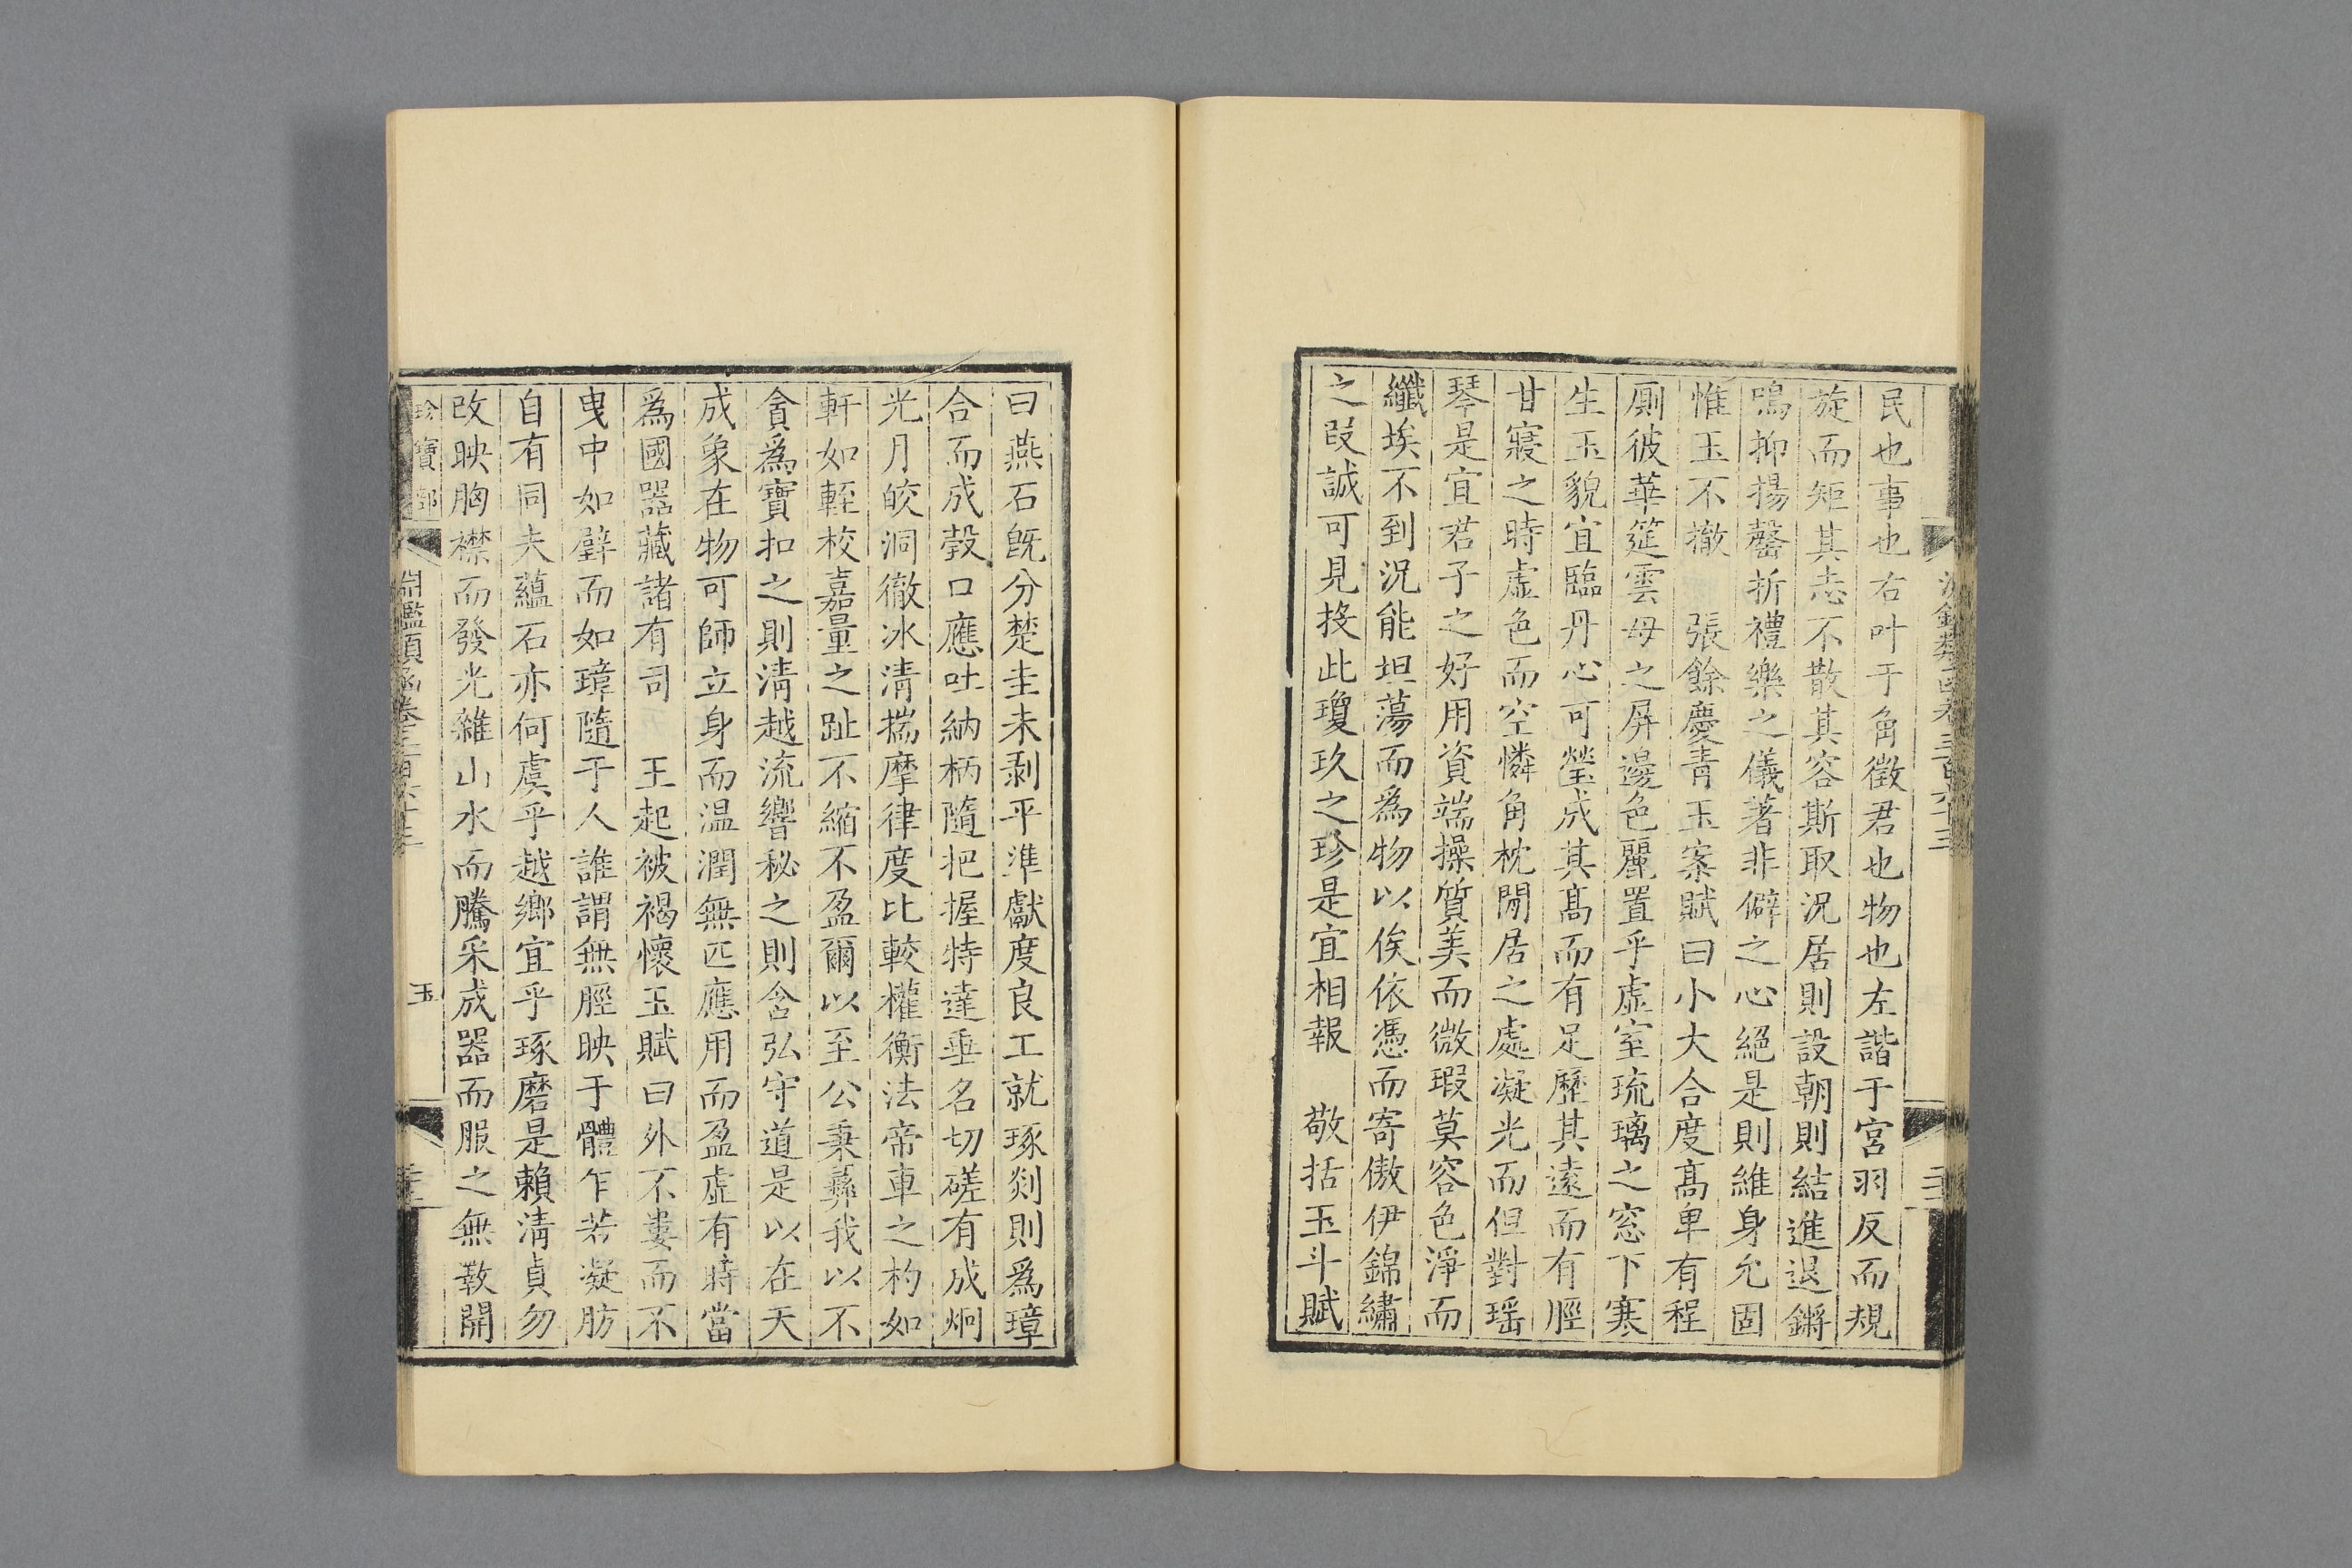 民也事也右叶于角徵君也物也左諧于宮羽反而規
旋而矩其志不散其容斯取況居則設朝則結進退鏘
鳴抑揚罄折禮樂之儀著非僻之心絕是則維身允固
惟玉不撤　張餘慶青玉案賦曰小大合度髙卑有程
厠彼華筵雲母之屏邊色麗置乎虚室琉璃之窓下寒
生玉貌宜臨丹心可瑩成其髙而有足歷其遠而有脛
甘寢之時虚色而空憐角枕閒居之處凝光而但對瑶
琴是宜君子之好用資端操質美而微瑕莫容色淨而
纖埃不到況能坦蕩而為物以俟依憑而寄傲伊錦繡
之段誠可見投此瓊玖之珍是宜相報　敬括玉斗賦
曰燕石旣分楚圭未剥平準獻度良工就琢剡則爲璋
合而成瑴口應吐納柄隨把握特達垂名切磋有成炯
光月皎洞徹冰清揣摩律度比較權衡法帝車之杓如
軒如輊校嘉量之趾不縮不盈爾以至公秉彞我以不
貪爲寶扣之則清越流響秘之則含弘守道是以在天
成象在物可師立身而温潤無匹應用而盈虚有時當
爲國器藏諸有司　王起被褐懷玉賦曰外不婁而不
曳中如璧而如璋隨于人誰謂無脛映于體乍若凝肪
自有同夫蘊石亦何虞乎越鄉宜乎琢磨是賴清貞勿
改映胸襟而發光雜山水而騰采成器而服之無斁開
珍寶部　淵鑑類函卷三百六十三　玉